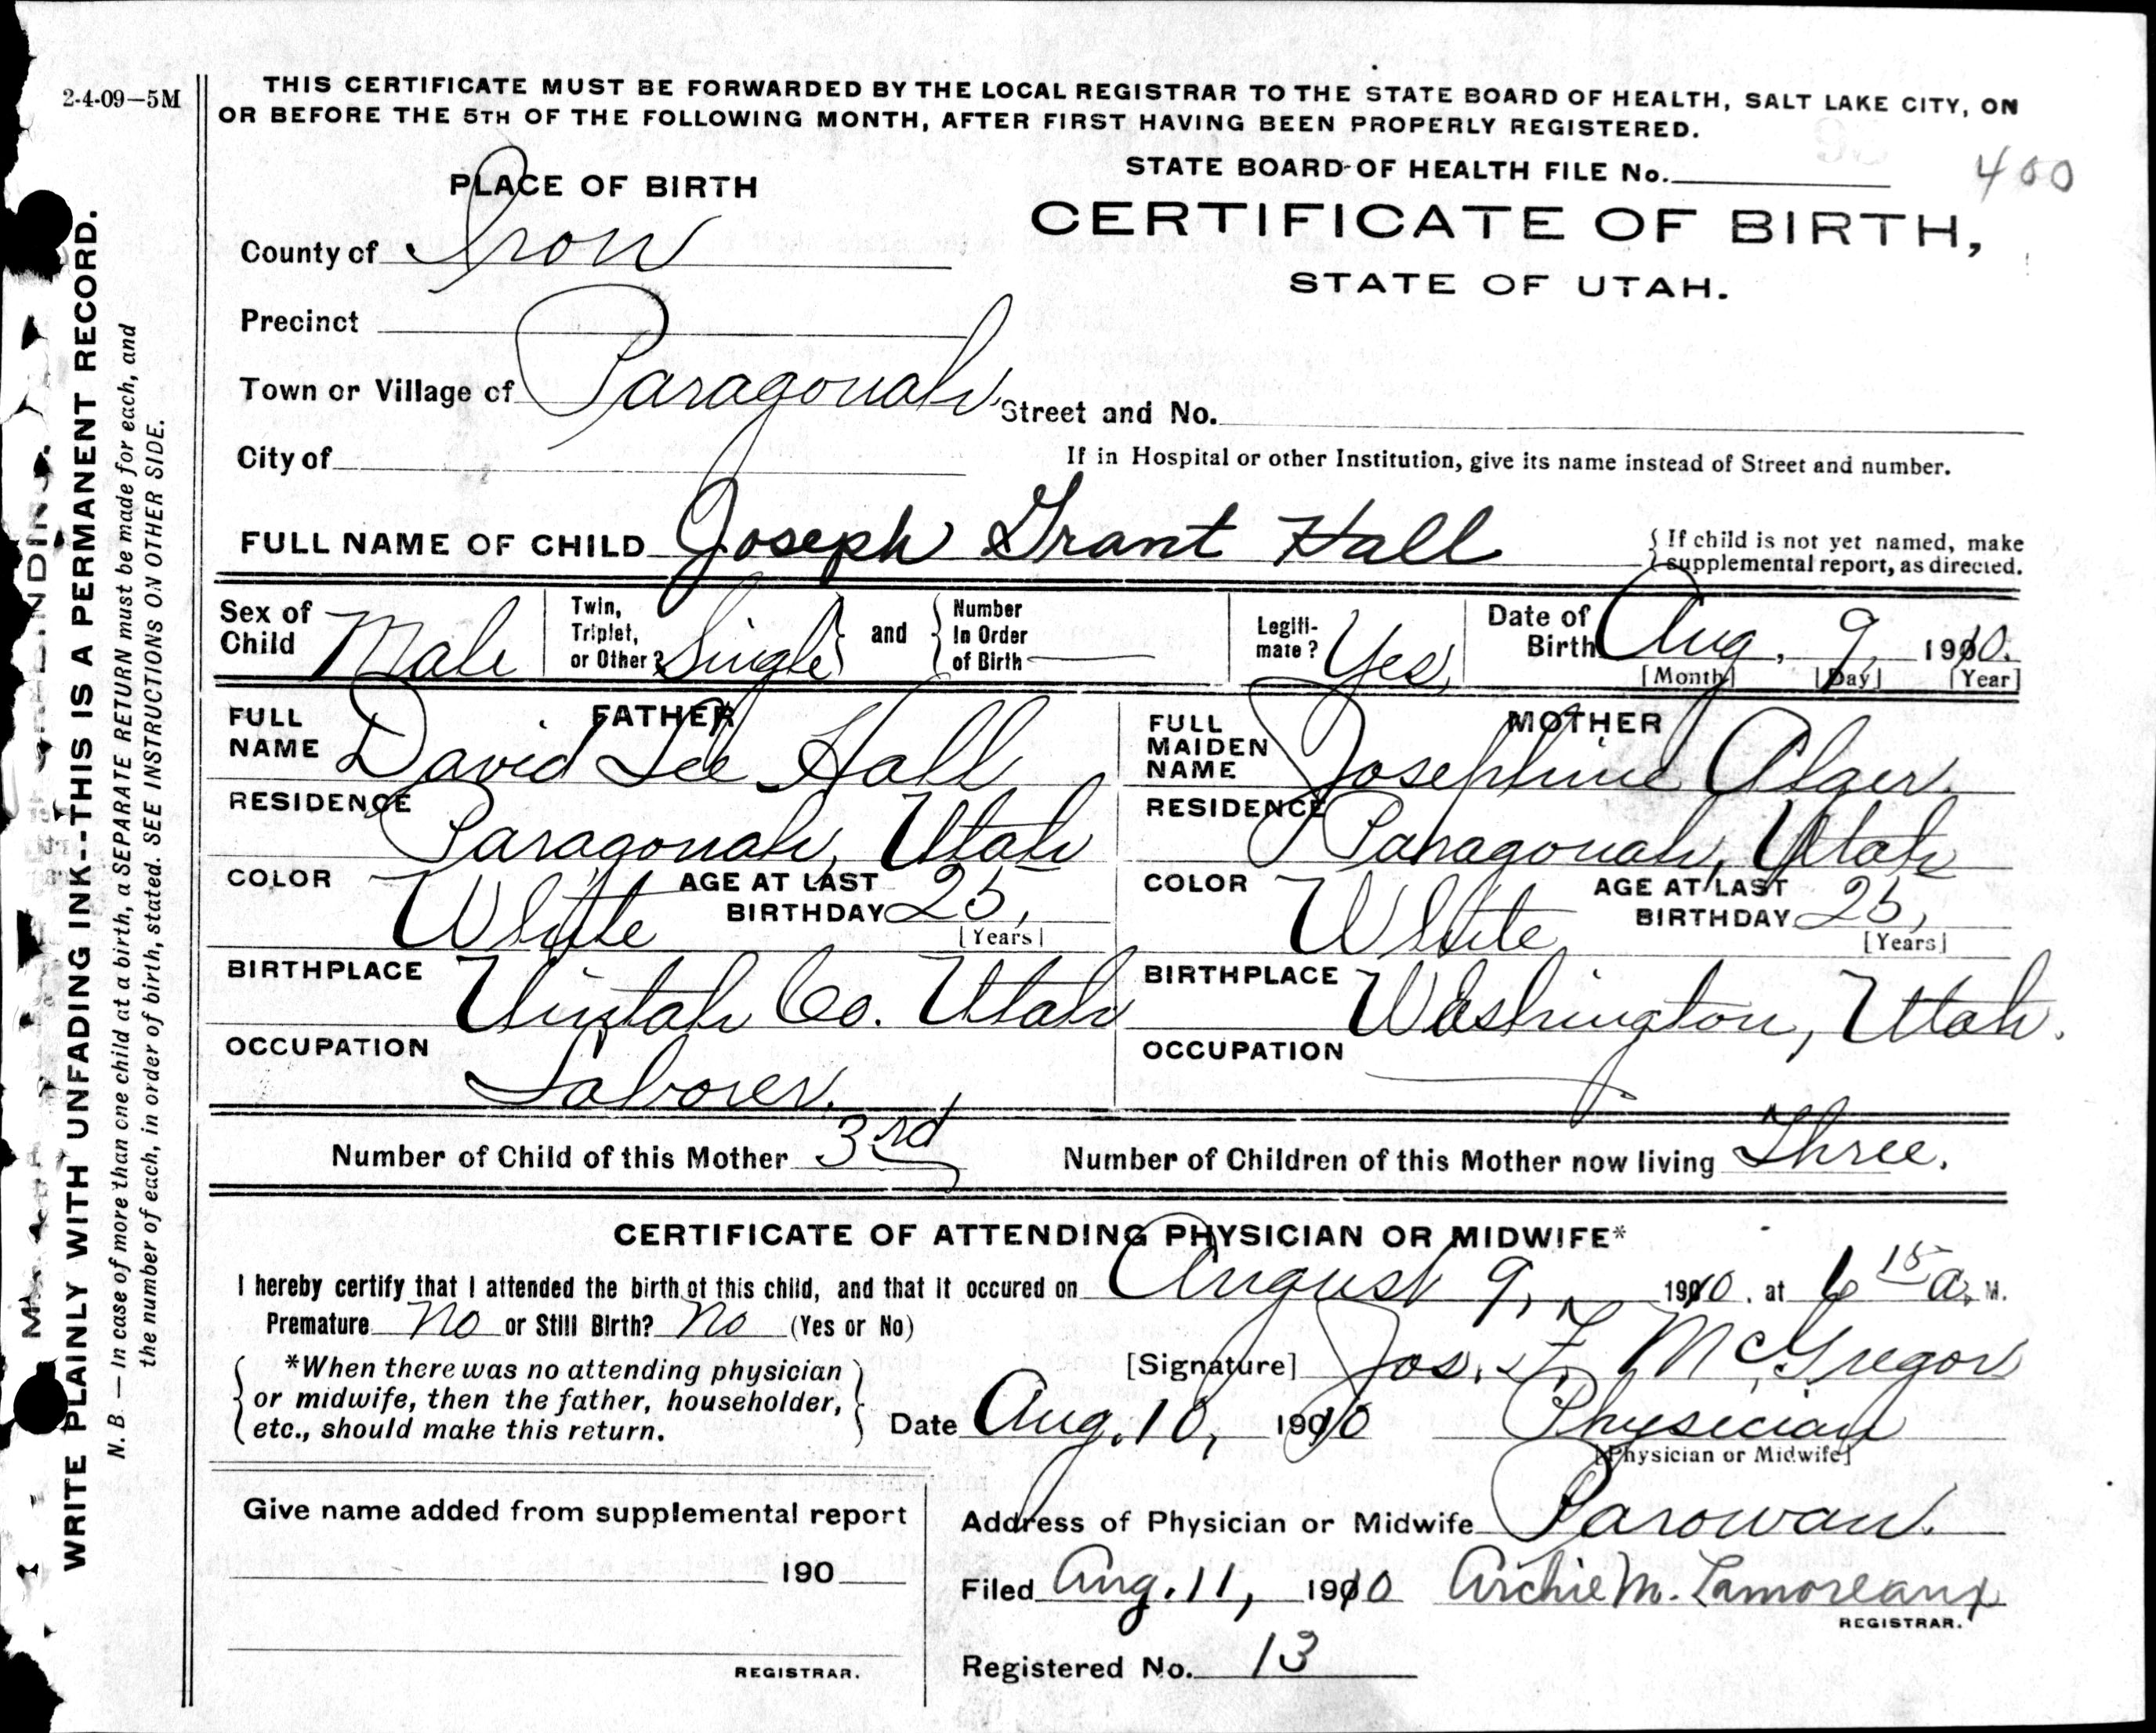 2-4-09—5M
THIS CERTIFICATE MUST BE FORWARDED BY THE LOCAL REGISTRAR TO THE STATE BOARD OF HEALTH, SALT LAKE CITY, ON
OR BEFORE THE 5TH OF THE FOLLOWING MONTH, AFTER FIRST HAVING BEEN PROPERLY REGISTERED.
STATE BOARD OF HEALTH FILE No. 400
PLACE OF BIRTH
CERTIFICATE OF BIRTH,
STATE OF UTAH.
County of Iron
Precinct
Town or Village of Paragonah Street and No.
City of
If in Hospital or other Institution, give its name instead of Street and number.
FULL NAME OF CHILD Joseph Grant Hall { If child is not yet named, make
supplemental report, as directed.
Sex of Child Male
Twin, Triplet, or Other? Single } and { Number In Order of Birth —
Legiti-mate? Yes,
Date of Birth Aug, 9, 1910.
[Month] [Day] [Year]
FATHER
FULL NAME David Lee Hall
RESIDENCE Paragonah, Utah
COLOR White AGE AT LAST BIRTHDAY 25,
[Years]
BIRTHPLACE Uintah Co. Utah
OCCUPATION Laborer.
MOTHER
FULL MAIDEN NAME Josephine Alger.
RESIDENCE Paragonah, Utah
COLOR White AGE AT LAST BIRTHDAY 25,
[Years]
BIRTHPLACE Washington, Utah.
OCCUPATION
Number of Child of this Mother 3rd Number of Children of this Mother now living Three.
CERTIFICATE OF ATTENDING PHYSICIAN OR MIDWIFE*
I hereby certify that I attended the birth of this child, and that it occured on August 9, 1910. at 6 15 a. M.
Premature No or Still Birth? No (Yes or No)
*When there was no attending physician
or midwife, then the father, householder,
etc., should make this return.
[Signature] Jos. F. McGregor
Date Aug. 10, 1910 Physician
[Physician or Midwife]
Give name added from supplemental report
190
REGISTRAR.
Address of Physician or Midwife Parowan.
Filed Aug. 11, 1910 Archie M. Lamoreaux
REGISTRAR.
Registered No. 13
WRITE PLAINLY WITH UNFADING INK--THIS IS A PERMANENT RECORD.
N. B. — In case of more than one child at a birth, a SEPARATE RETURN must be made for each, and
the number of each, in order of birth, stated. SEE INSTRUCTIONS ON OTHER SIDE.